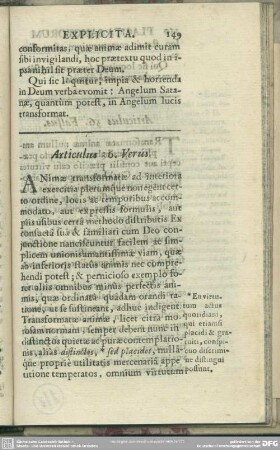 EXPLICITA. 149
conformitas, quæ animæ adimit curam
sibi invigilandi, hoc prætextu quod in i-
psa nihil sit præter Deum.
Qui sic loquitur, impia & horrenda
in Deum verba evomit: Angelum Sata-
næ, quantum potest, in Angelum lucis
transformat.
Articulus 36. Verus.
ANimæ transformatæ ad interiora
exercitia plerumque non egent cer-
to ordine, locis ac temporibus accom-
modatæ, aut expressis formulis, aut
piis usibus certa methodo distributis. Ex
consueta sua & familiari cum Deo con-
junctione nanciscuntur facilem ac sim-
plicem unionis umantissimæ viam, quæ
ab inferioris status animis nec compre-
hendi potest; & pernicioso exemplo fo-
ret aliis omnibus minus perfectis ani-
mis, quæ ordinata quadam orandi ra-
tione, ut se sustineant, adhuc indigent
Transformatæ animæ, licet citra mo-
rosam normam, semper debent nunc in
distinctis quietæ ac puræ contemplatio-
nis, alias distinctos, * sed placidos, nulla-
que propriè utilitatis mercenariâ appe-
titione temperatos, omnium virtutum
* En virtu-
tum actus
quotidiani,
qui etiamsi
placidi & gra-
tuiti, conspi-
cuo discrimi-
ne distingui
possunt.